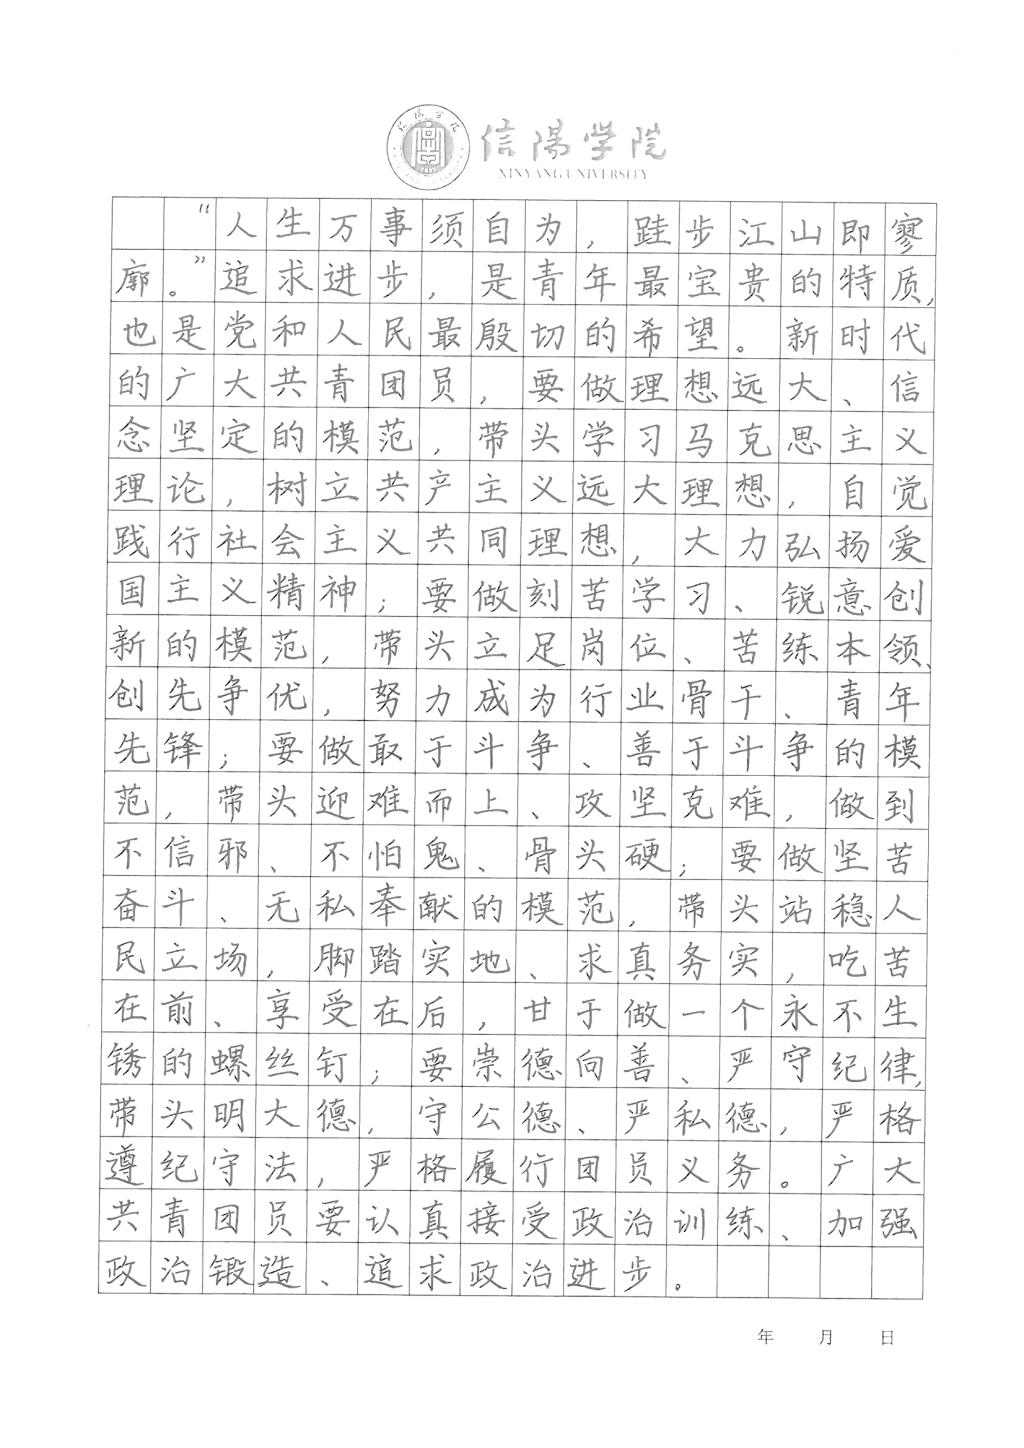 信阳学院
XINYANG UNIVERSITY
“人生万事须自为，跬步江山即寥
廓。”追求进步，是青年最宝贵的特质，
也是党和人民最殷切的希望。新时代
的广大共青团员，要做理想远大、信
念坚定的模范，带头学习马克思主义
理论，树立共产主义远大理想，自觉
践行社会主义共同理想，大力弘扬爱
国主义精神；要做刻苦学习、锐意创
新的模范，带头立足岗位、苦练本领、
创先争优，努力成为行业骨干、青年
先锋；要做敢于斗争、善于斗争的模
范，带头迎难而上、攻坚克难，做到
不信邪、不怕鬼、骨头硬；要做坚苦
奋斗、无私奉献的模范，带头站稳人
民立场，脚踏实地、求真务实，吃苦
在前、享受在后，甘于做一个永不生
锈的螺丝钉；要崇德向善、严守纪律，
带头明大德，守公德、严私德，严格
遵纪守法，严格履行团员义务。广大
共青团员要认真接受政治训练、加强
政治锻造、追求政治进步。
年 月 日